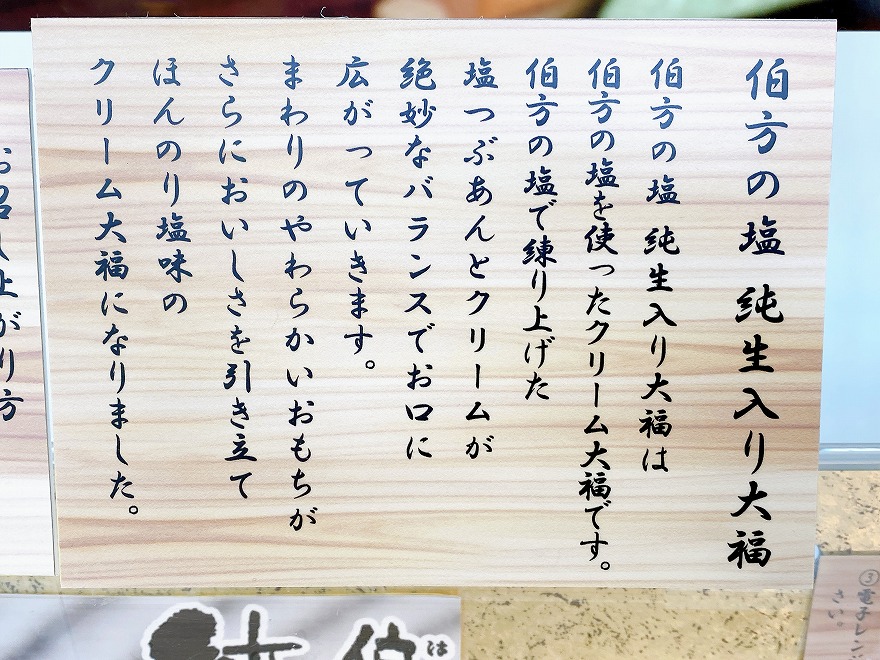 伯方の塩 純生入り大福
伯方の塩 純生入り大福は
伯方の塩を使ったクリーム大福です。
伯方の塩で練り上げた
塩つぶあんとクリームが
絶妙なバランスでお口に
広がっていきます。
まわりのやわらかいおもちが
さらにおいしさを引き立て
ほんのり塩味の
クリーム大福になりました。
お召し上がり方
③電子レン
さい。
は